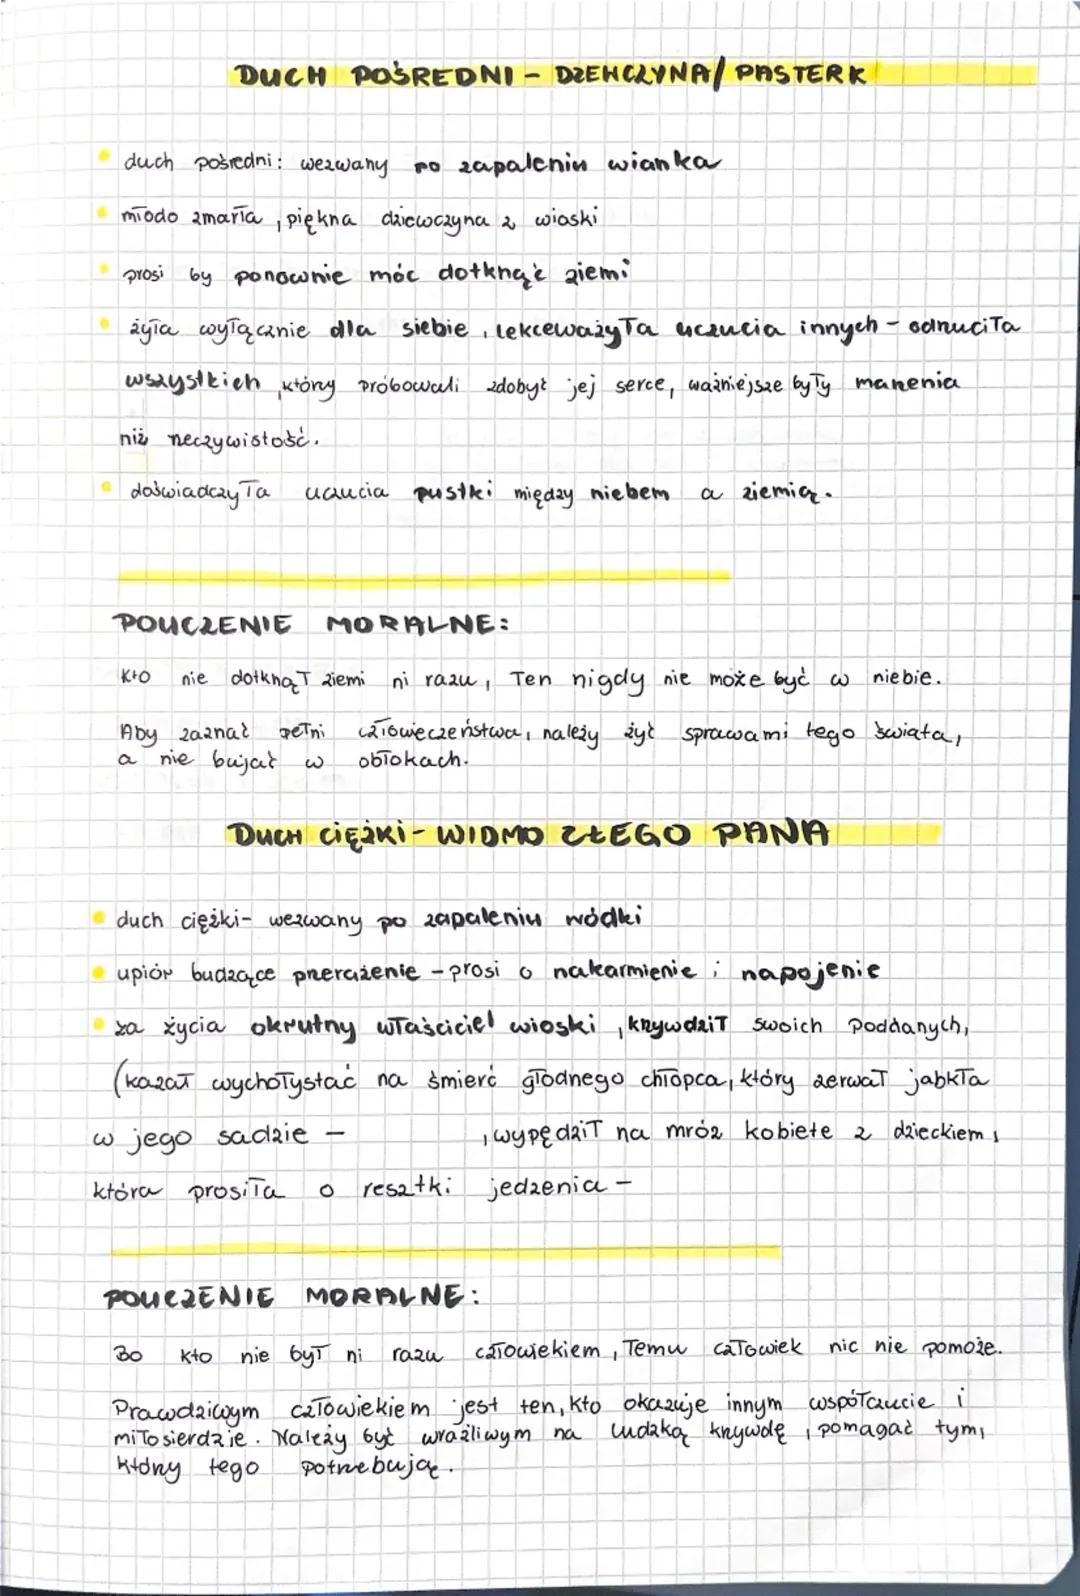 DUCH POŚREDNI - DZEWCZYNA/ PASTERK
duch pośredni: wezwany po zapaleniu wianka
młodo zmarła, piękna dziewczyna z wioski
prosi by ponownie móc dotknąć ziemi
żyła wyłącznie dla siebie, lekceważyła uczucia innych - odrzuciła
wszystkich, którzy próbowali zdobyć jej serce, ważniejsze były marzenia
niż rzeczywistość.
doświadczyła uczucia pustki między niebem a ziemią.
POUCZENIE MORALNE:
Kto nie dotknął ziemi ni razu, Ten nigdy nie może być w niebie.
Aby zaznać pełni człowieczeństwa, należy żyć sprawami tego świata,
a nie bujać w obłokach.
DUCH CIĘŻKI - WIDMO ZŁEGO PANA
duch ciężki- wezwany po zapaleniu wódki
upiór budzące przerażenie - prosi o nakarmienie i napojenie
za życia okrutny właściciel wioski, krzywdził swoich poddanych,
(kazał wychołystać na śmierć głodnego chłopca, który zerwał jabkła
w jego sadzie - , wypędził na mróz kobiete z dzieckiem,
która prosiła o resztki jedzenia -
POUCZENIE MORALNE:
Bo kto nie był ni razu człowiekiem, Temu człowiek nic nie pomoże.
Prawdziwym człowiekiem jest ten, kto okazuje innym współczucie i
miłosierdzie. Należy być wrażliwym na ludzką krzywdę, pomagać tym,
którzy tego potrzebują.